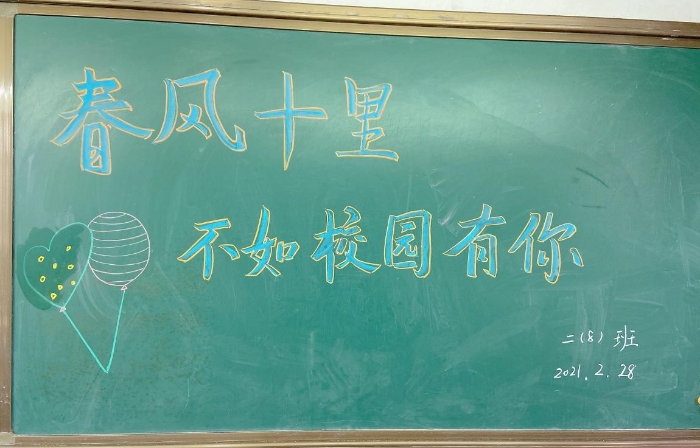 春风十里
不如校园有你
二(8)班
2021.2.28